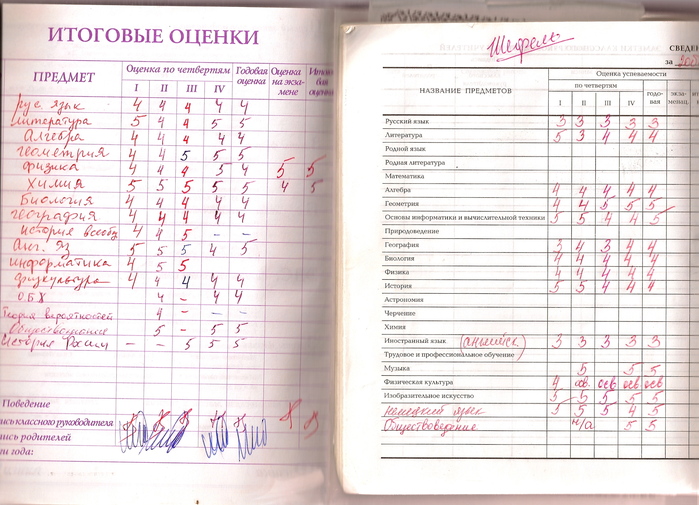 ИТОГОВЫЕ ОЦЕНКИ
ПРЕДМЕТ
Оценка по четвертям
Годовая оценка
Оценка на экзамене
I II III IV
рус. язык 4 4 4 4 4
литература 5 4 4 5 5
Алгебра 4 4 4 4 4
геометрия 4 4 5 5 5
физика 4 4 4 5 4 5 5
Химия 5 5 5 5 5 4 5
Биология 4 4 4 4 4
география 4 4 4 4 4
история всеобщ 4 4 5 - -
Анг. яз 5 5 5 4 5
информатика 4 5 5
физкультура 4 4 4 4 4
ОБЖ 4 - 4 4
Теория вероятностей 4 - -
Обществознание 5 - 5 5
История России - - 5 5 5
Поведение
пись классного руководителя
пись родителей
ги года:
Шефель
СВЕДЕ
за 200
НАЗВАНИЕ ПРЕДМЕТОВ
Оценка успеваемости
по четвертям
годовая
экзаменац.
I II III IV
Русский язык 3 3 3 3 3
Литература 5 3 4 4 4
Родной язык
Родная литература
Математика
Алгебра 4 4 4 4 4
Геометрия 4 4 5 5 5
Основы информатики и вычислительной техники 5 5 4 4 5
Природоведение
География 3 4 3 4 4
Биология 4 4 4 4 4
Физика 4 4 4 4 4
История 5 5 4 4 4
Астрономия
Черчение
Химия
Иностранный язык (английск) 3 3 3 3 3
Трудовое и профессиональное обучение
Музыка 5 5 5
Физическая культура 4 осв. осв осв осв
Изобразительное искусство 5 5 5 5 5
немецкий язык 5 5 5 4 5
Обществоведение н/а 5 5